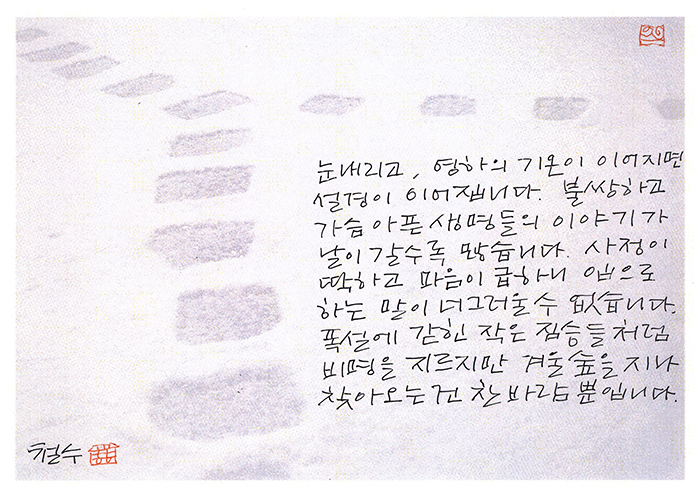 눈내리고, 영하의 기온이 이어지면
설경이 이어집니다. 불쌍하고
가슴 아픈 생명들의 이야기가
날이 갈수록 많습니다. 사정이
딱하고 마음이 급하니 입으로
하는 말이 너그러울 수 없습니다.
폭설에 갇힌 작은 짐승들처럼
비명을 지르지만 겨울 숲을 지나
찾아오는건 찬 바람 뿐입니다.
철수